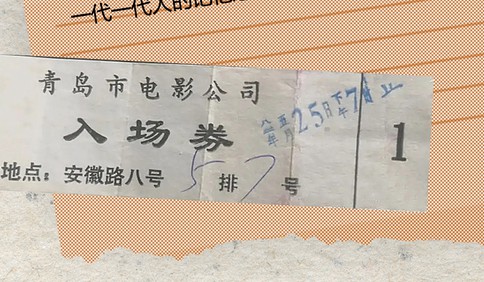 一代一代人的记忆
青岛市电影公司
入场券
地点：安徽路八号 5排7号
八二年五月25日下午7
1